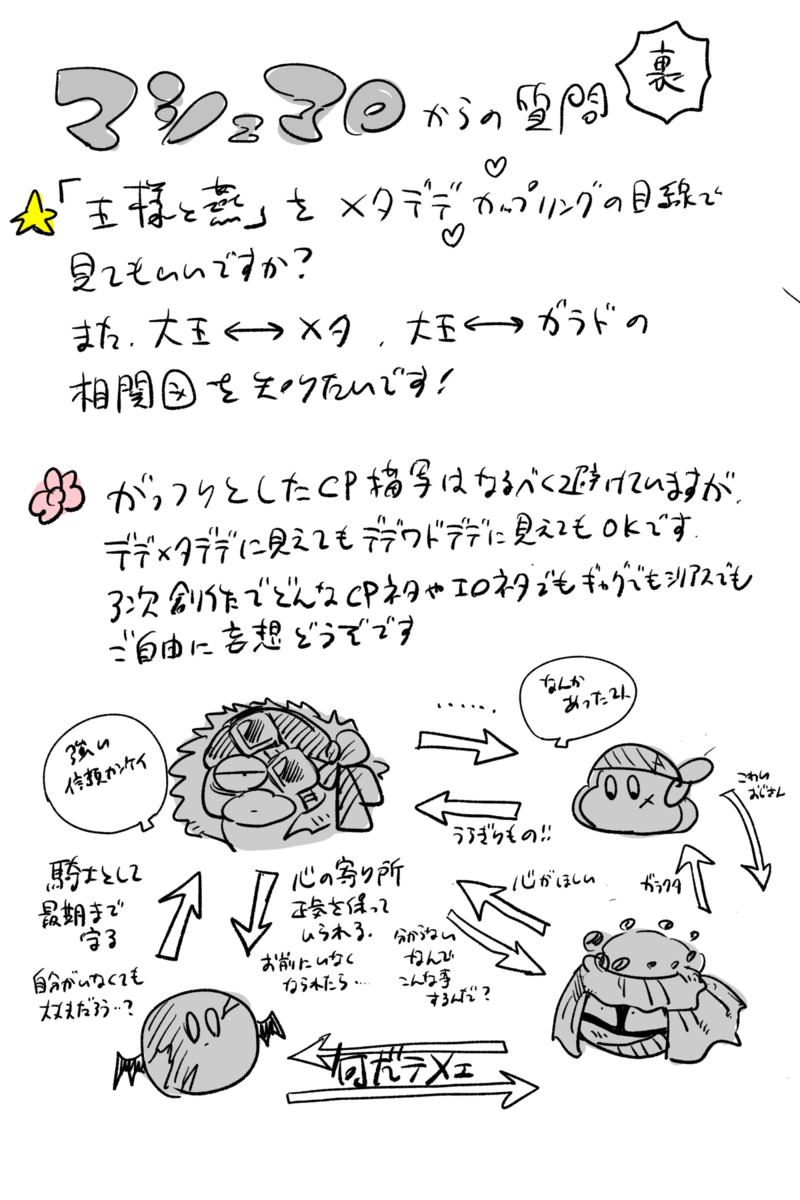 マシュマロからの質問
裏
「王様と燕」を メタデデ カップリングの目線で
見てもいいですか?
また、大王⟷メタ、大王⟷ガラドの
相関図を知りたいです!
がっつりとしたCP描写はなるべく避けていますが、
デデメタデデに見えてもデデワドデデに見えてもOKです
3次創作でどんなCPネタやエロネタでもギャグでもシリアスでも
ご自由に妄想どうぞです
強い
信頼カンケイ
......
なんか
あった2人
うらぎりもの!!
こわい
おじさん
騎士として
最期まで
守る
自分がいなくても
大丈夫だろう…?
心の寄り所
正気を保って
いられる。
お前にいなく
なられたら…
心がほしい
分からない
なんで
こんな事
するんだ?
ガラクタ
何だテメェ